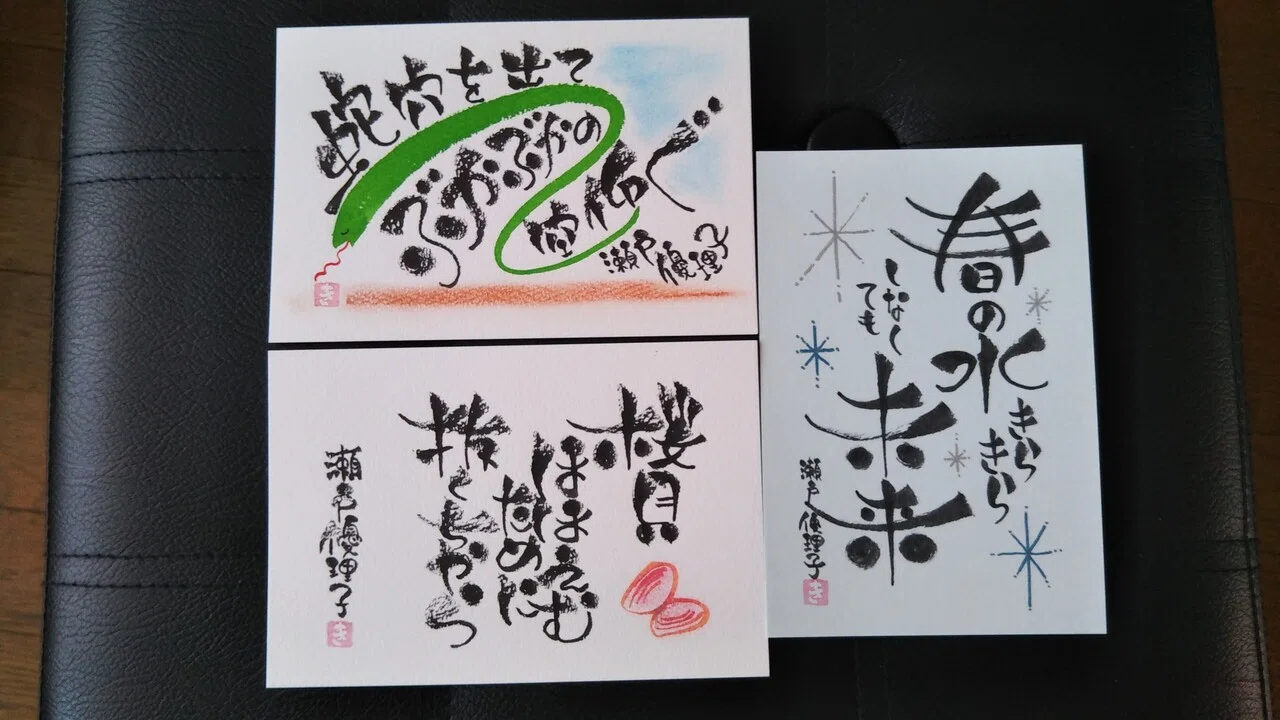 蛇穴を出て
ぶかぶかの
空仰ぐ
瀬戸優理子
き
桜貝
ほほえむ
ために
抜くちから
瀬戸優理子
き
春の水
きら
きら
しなく
ても
未来
瀬戸優理子
き